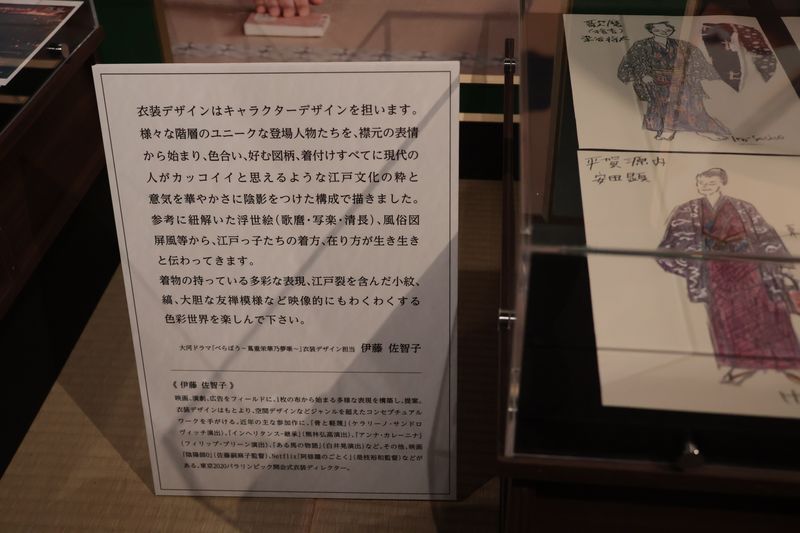 衣装デザインはキャラクターデザインを担います。
様々な階層のユニークな登場人物たちを、襟元の表情
から始まり、色合い、好む図柄、着付けすべてに現代の
人がカッコイイと思えるような江戸文化の粋と
意気を華やかさに陰影をつけた構成で描きました。
参考に紐解いた浮世絵(歌麿・写楽・清長)、風俗図
屏風等から、江戸っ子たちの着方、在り方が生き生き
と伝わってきます。
着物の持っている多彩な表現、江戸裂を含んだ小紋、
縞、大胆な友禅模様など映像的にもわくわくする
色彩世界を楽しんで下さい。
大河ドラマ「べらぼう~蔦重栄華乃夢噺~」衣装デザイン担当 伊藤 佐智子
《 伊藤 佐智子 》
映画、演劇、広告をフィールドに、1枚の布から始まる多様な表現を構築し、提案。
衣装デザインはもとより、空間デザインなどジャンルを超えたコンセプチュアル
ワークを手がける。近年の主な参加作に、「骨と軽蔑」(ケラリーノ・サンドロ
ヴィッチ演出)、「インヘリタンス-継承」(熊林弘高演出)、「アンナ・カレーニナ」
(フィリップ・ブリーン演出)、「ある馬の物語」(白井晃演出)など。その他、映画
「陰陽師0」(佐藤嗣麻子監督)、Netflix「阿修羅のごとく」(是枝裕和監督)などが
ある。東京2020パラリンピック開会式衣装ディレクター。
平賀源内
安田顕